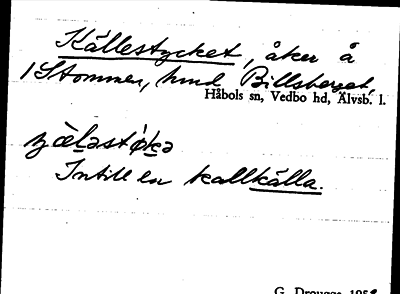 Källestycket, åker å
1 Stommen, hmd Billsberget,
Håbols sn, Vedbo hd, Älvsb. l.
Intill en kallkälla.
G. Drougge 1958